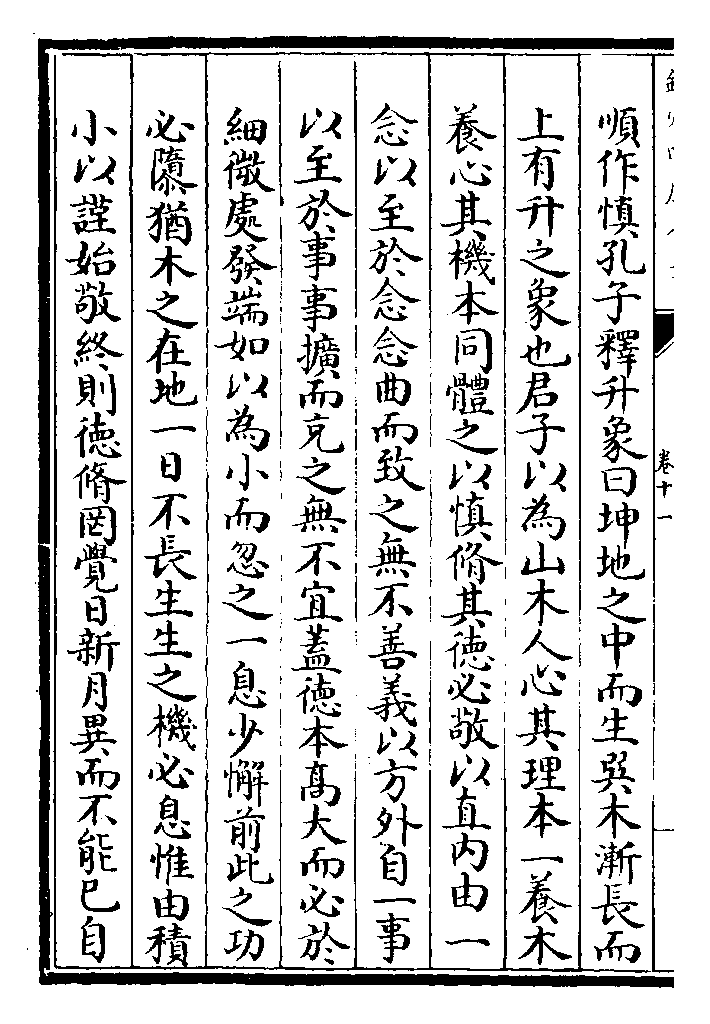 順作慎孔子釋升象曰坤地之中而生巽木漸長而
上有升之象也君子以為山木人心其理本一養木
養心其機本同體之以慎脩其徳必敬以直内由一
念以至於念念曲而致之無不善義以方外自一事
以至於事事擴而充之無不宜蓋徳本髙大而必於
細微處發端如以為小而忽之一息少懈前此之功
必隳猶木之在地一日不長生生之機必息惟由積
小以謹始敬終則徳脩罔覺日新月異而不能已自
卷十一